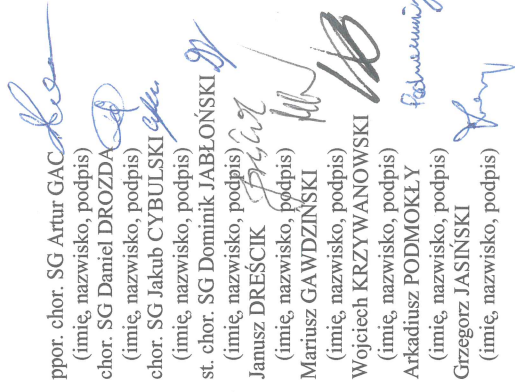 ppor. chor. SG Artur GAC
(imię, nazwisko, podpis)
chor. SG Daniel DROZDA
(imię, nazwisko, podpis)
chor. SG Jakub CYBULSKI
(imię, nazwisko, podpis)
st. chor. SG Dominik JABŁOŃSKI
(imię, nazwisko, podpis)
Janusz DREŚCIK
(imię, nazwisko, podpis)
Mariusz GAWDZIŃSKI
(imię, nazwisko, podpis)
Wojciech KRZYWANOWSKI
(imię, nazwisko, podpis)
Arkadiusz PODMOKŁY
(imię, nazwisko, podpis)
Grzegorz JASIŃSKI
(imię, nazwisko, podpis)